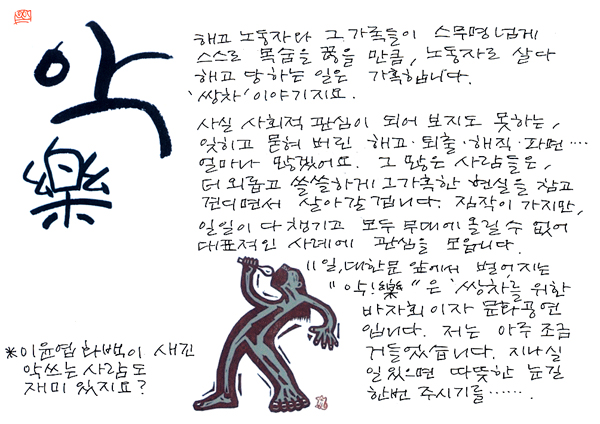 악
樂
해고 노동자와 그 가족들이 스무명 넘게
스스로 목숨을 끊을 만큼, 노동자로 살다
해고 당하는 일은 가혹합니다.
'쌍차' 이야기지요.
사실 사회적 관심이 되어 보지도 못하는,
잊히고 묻혀 버린 해고·퇴출·해직·파면····
얼마나 많겠어요. 그 많은 사람들은,
더 외롭고 쓸쓸하게 그 가혹한 현실을 참고
견디면서 살아갈 겁니다. 짐작이 가지만,
일일이 다 챙기고 모두 무대에 올릴 수 없어
대표적인 사례에 관심을 모읍니다.
11일, 대한문 앞에서 벌어지는
"악!樂"은 '쌍차'를 위한
바자회이자 문화공연
입니다. 저는 아주 조금
거들었습니다. 지나실
일 있으면 따뜻한 눈길
한번 주시기를······.
*이윤엽 화백이 새긴
악쓰는 사람도
재미있지요?